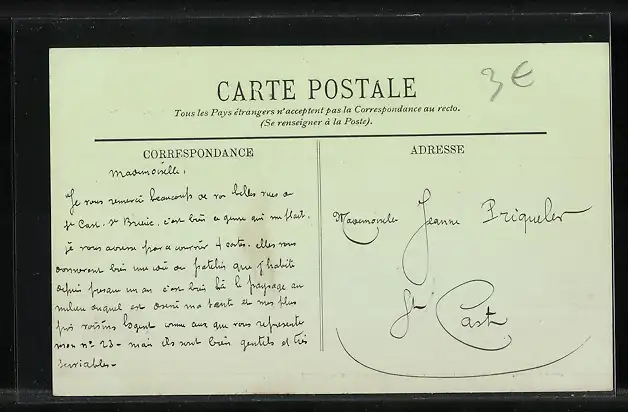 3€
CARTE POSTALE
Tous les Pays étrangers n'acceptent pas la Correspondance au recto.
(Se renseigner à la Poste).
CORRESPONDANCE
Mademoiselle,
Je vous remercie beaucoup de vos belles vues de
St Cast. St Brieuc, c'est bien ce genre qui me plait.
je vous adresse par ce courrier 4 cartes. elles vous
donneront bien une idée du que j'habite
depuis presque un an c'est bien là le paysage au
milieu duquel est ma tante et mes plus
voisins logent comme ceux que vous représente
mon n° 23 - mais ils sont bien gentils et très
serviables -
ADRESSE
Mademoiselle Jeanne Priqueler
St Cast